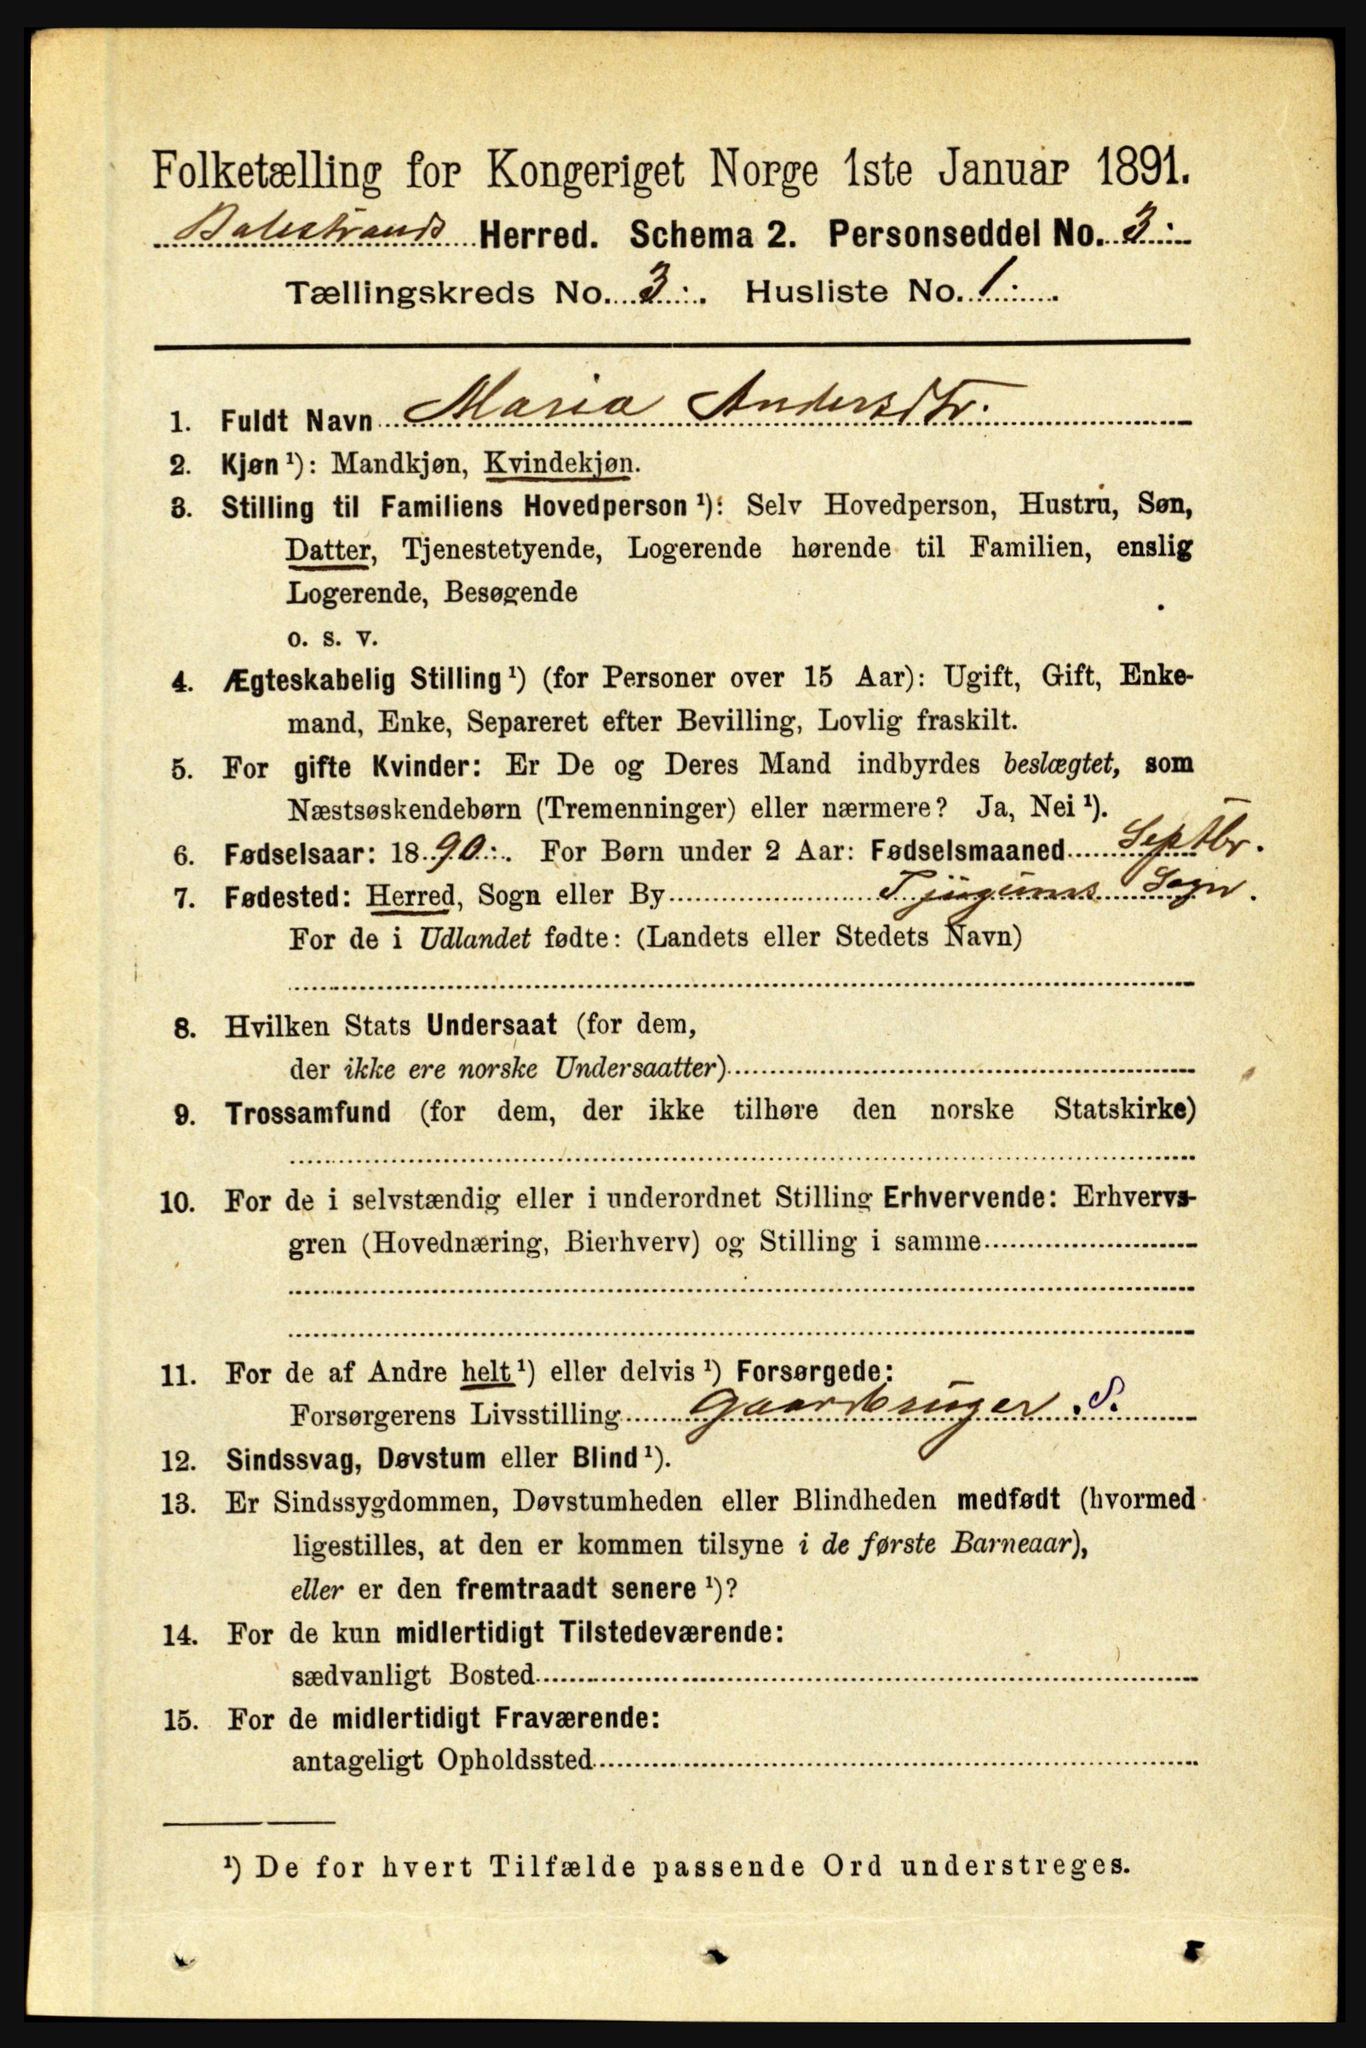 Folketælling for Kongeriget Norge 1ste Januar 1891.
Balestrands Herred. Schema 2. Personseddel No. 3.
Tællingskreds No. 3. Husliste No. 1.
1. Fuldt Navn Maria Andersdtr.
2. Kjøn ¹): Mandkjøn, Kvindekjøn.
3. Stilling til Familiens Hovedperson ¹): Selv Hovedperson, Hustru, Søn,
Datter, Tjenestetyende, Logerende hørende til Familien, enslig
Logerende, Besøgende
o. s. v.
4. Ægteskabelig Stilling ¹) (for Personer over 15 Aar): Ugift, Gift, Enke-
mand, Enke, Separeret efter Bevilling, Lovlig fraskilt.
5. For gifte Kvinder: Er De og Deres Mand indbyrdes beslægtet, som
Næstsøskendebørn (Tremenninger) eller nærmere? Ja, Nei ¹).
6. Fødselsaar: 1890. For Børn under 2 Aar: Fødselsmaaned Septbr.
7. Fødested: Herred, Sogn eller By Tjugums Sogn.
For de i Udlandet fødte: (Landets eller Stedets Navn)
8. Hvilken Stats Undersaat (for dem,
der ikke ere norske Undersaatter)
9. Trossamfund (for dem, der ikke tilhøre den norske Statskirke)
10. For de i selvstændig eller i underordnet Stilling Erhvervende: Erhvervs-
gren (Hovednæring, Bierhverv) og Stilling i samme
11. For de af Andre helt ¹) eller delvis ¹) Forsørgede:
Forsørgerens Livsstilling Gaardbruger. S.
12. Sindssvag, Døvstum eller Blind ¹).
13. Er Sindssygdommen, Døvstumheden eller Blindheden medfødt (hvormed
ligestilles, at den er kommen tilsyne i de første Barneaar),
eller er den fremtraadt senere ¹)?
14. For de kun midlertidigt Tilstedeværende:
sædvanligt Bosted
15. For de midlertidigt Fraværende:
antageligt Opholdssted
¹) De for hvert Tilfælde passende Ord understreges.